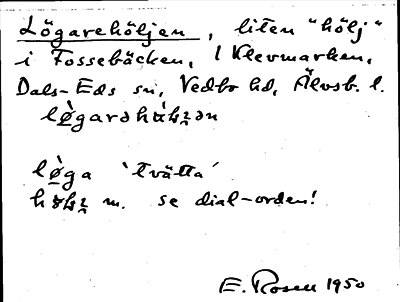 Lögarehöljen, liten "hölj"
i Fossebäcken, i Klevmarken,
Dals-Eds sn, Vedbo hd, Älvsb. l.
lø̀garə
lø̀ga 'tvätta'
m. se dial-orden!
E. Rosen 1950